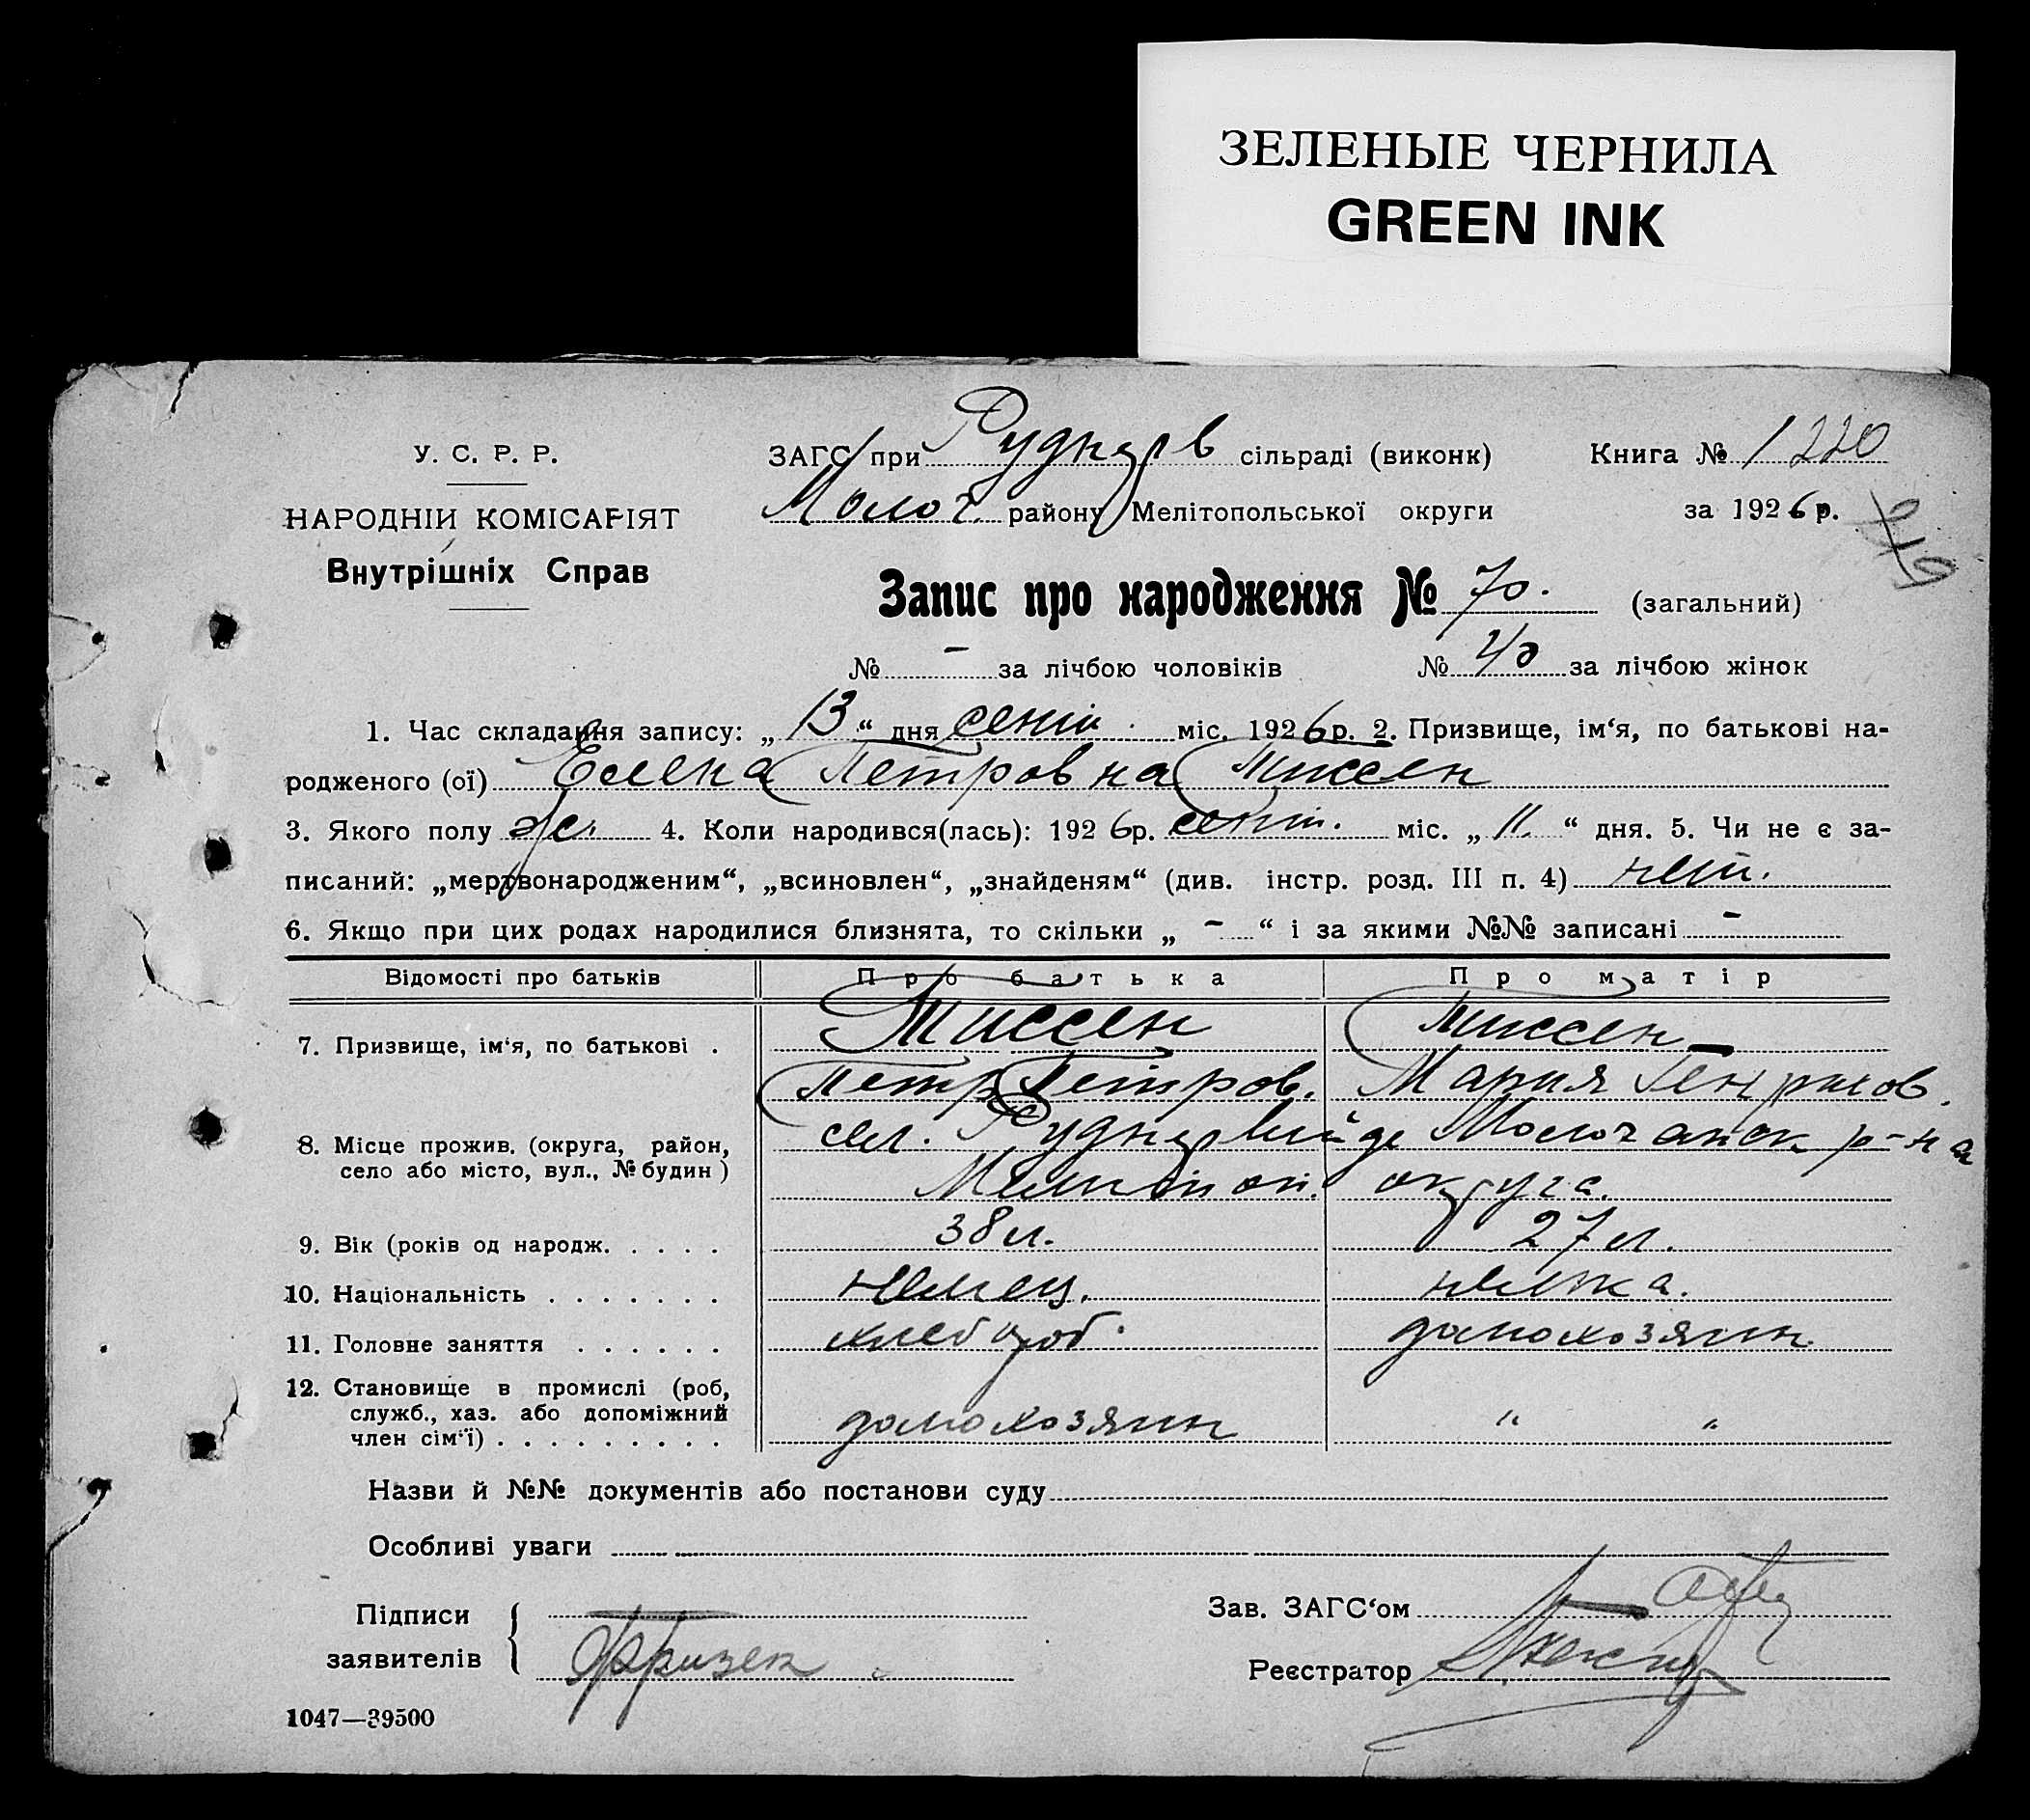 ЗЕЛЕНЫЕ ЧЕРНИЛА
GREEN INK
У. С. Р. Р.
НАРОДНІЙ КОМІСАРІЯТ
Внутрішніх Справ
ЗАГС при Рудкерв сільраді (виконк)
Молоч. району Мелітопольської округи
Книга № 1 220
за 1926 р.
279
Запис про народження № 70. (загальний)
№ - за лічбою чоловіків № 40 за лічбою жінок
1. Час складання запису: „ 13 “ дня сент. міс. 1926 р. 2. Призвище, ім‘я, по батькові на-
родженого (ої) Елена Петровна Тиссен
3. Якого полу жен. 4. Коли народився(лась): 1926р. сент. міс. „ 11. “ дня. 5. Чи не є за-
писаний: „мертвонародженим“, „всиновлен“, „знайденям“ (див. інстр. розд. III п. 4) нет.
6. Якщо при цих родах народилися близнята, то скільки „ - “ і за якими №№ записані -
Відомості про батьків Про батька Про матір
7. Призвище, ім‘я, по батькові . Тиссен Тиссен
Петр Петров. Мария Генрихов.
8. Місце прожив. (округа, район, сел. Рудкервейде Молочанск р-на
село або місто, вул., № будин) Мелитоп. округа.
9. Вік (років од народж. . . . . 38 л. 27 л.
10. Національність . . . . . . . немец. немка.
11. Головне заняття . . . . . . хлебороб. домохозяин.
12. Становище в промислі (роб,
служб., хаз. або допоміжний
член сім‘ї) . . . . . . . . . домохозяин " "
Назви й №№ документів або постанови суду
Особливі уваги
Підписи
заявителів
Фризен
Зав. ЗАГС‘ом
Реєстратор
1047—39500